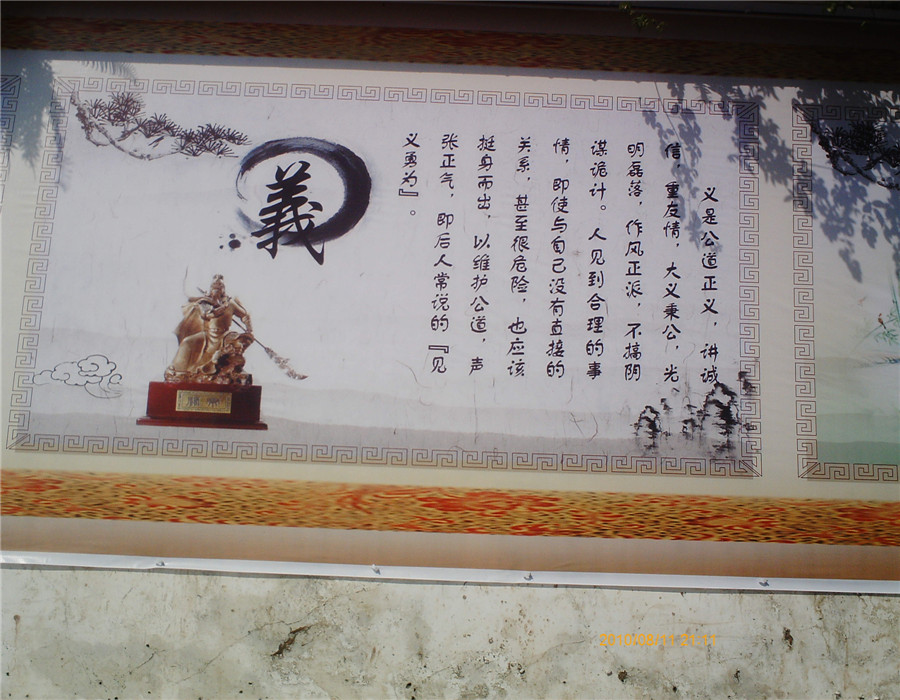 義
义是公道正义，讲诚
信，重友情，大义秉公，光
明磊落，作风正派，不搞阴
谋诡计。人见到合理的事
情，即使与自己没有直接的
关系，甚至很危险，也应该
挺身而出，以维护公道，声
张正气，即后人常说的『见
义勇为』。